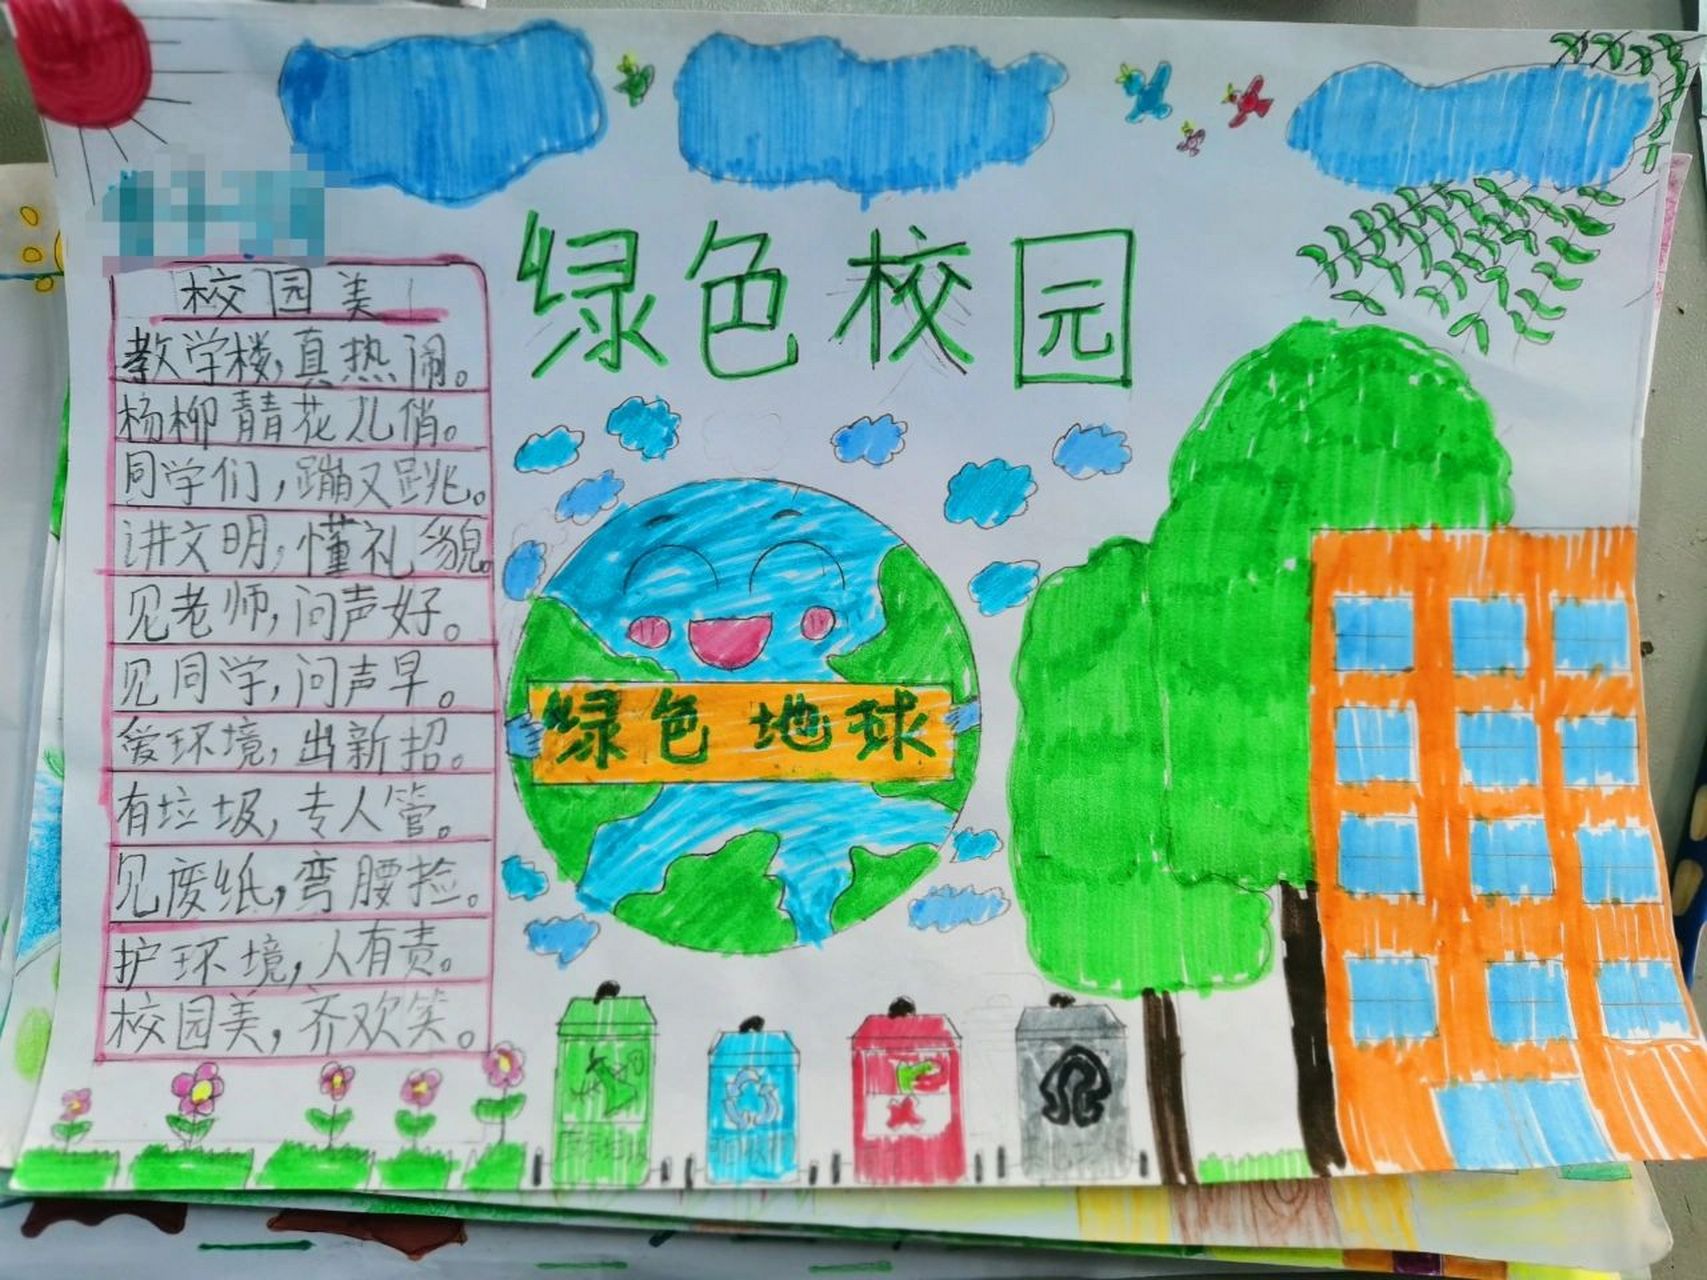 绿色校园
校园美
教学楼,真热闹。
杨柳青花儿俏。
同学们,蹦又跳。
讲文明,懂礼貌。
见老师,问声好。
见同学,问声早。
爱环境,出新招。
有垃圾,专人管。
见废纸,弯腰捡。
护环境,人有责。
校园美,齐欢笑。
绿色地球